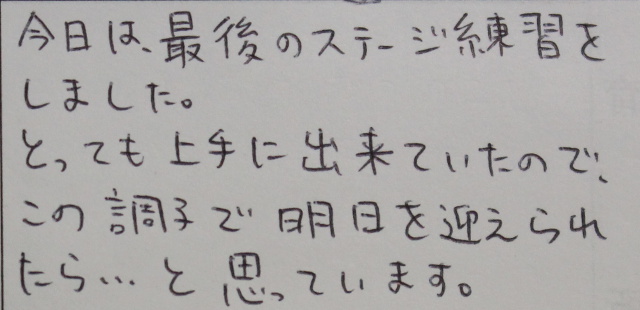 今日は、最後のステージ練習を
しました。
とっても上手に出来ていたので、
この調子で明日を迎えられ
たら…と思っています。